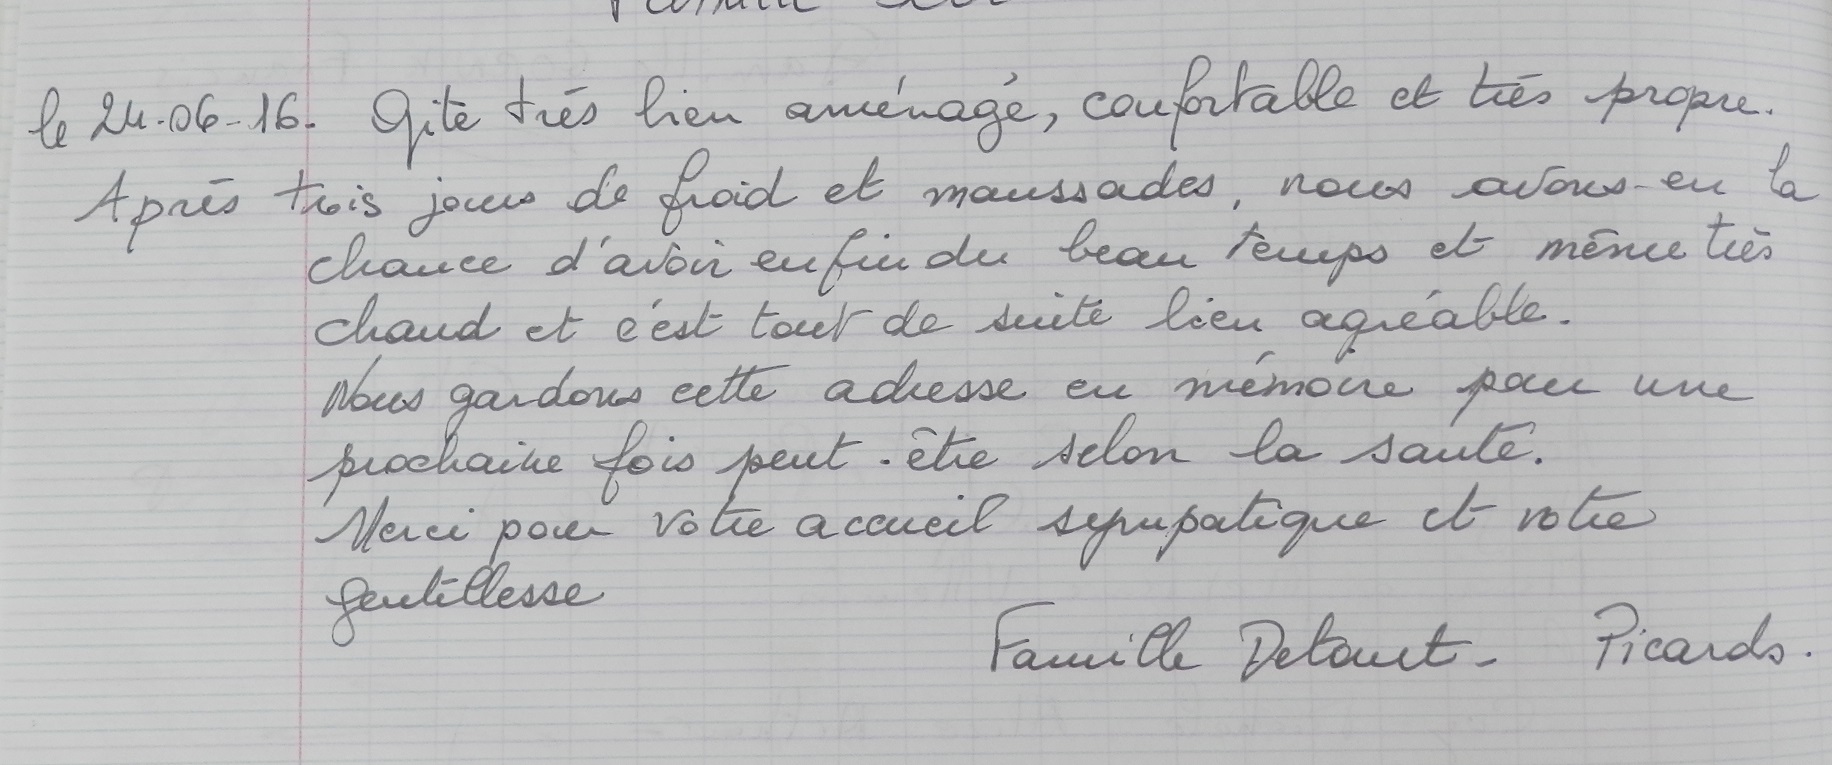 le 24-06-16. Gite très bien aménagé, confortable et très propre.
Après trois jours de froid et maussades, nous avons eu la
chance d'avoir enfin du beau temps et même très
chaud et c'est tout de suite bien agréable.
Nous gardons cette adresse en mémoire pour une
prochaine fois peut-être selon la santé.
Merci pour votre accueil sympatique et votre
gentillesse
Famille - Picards.